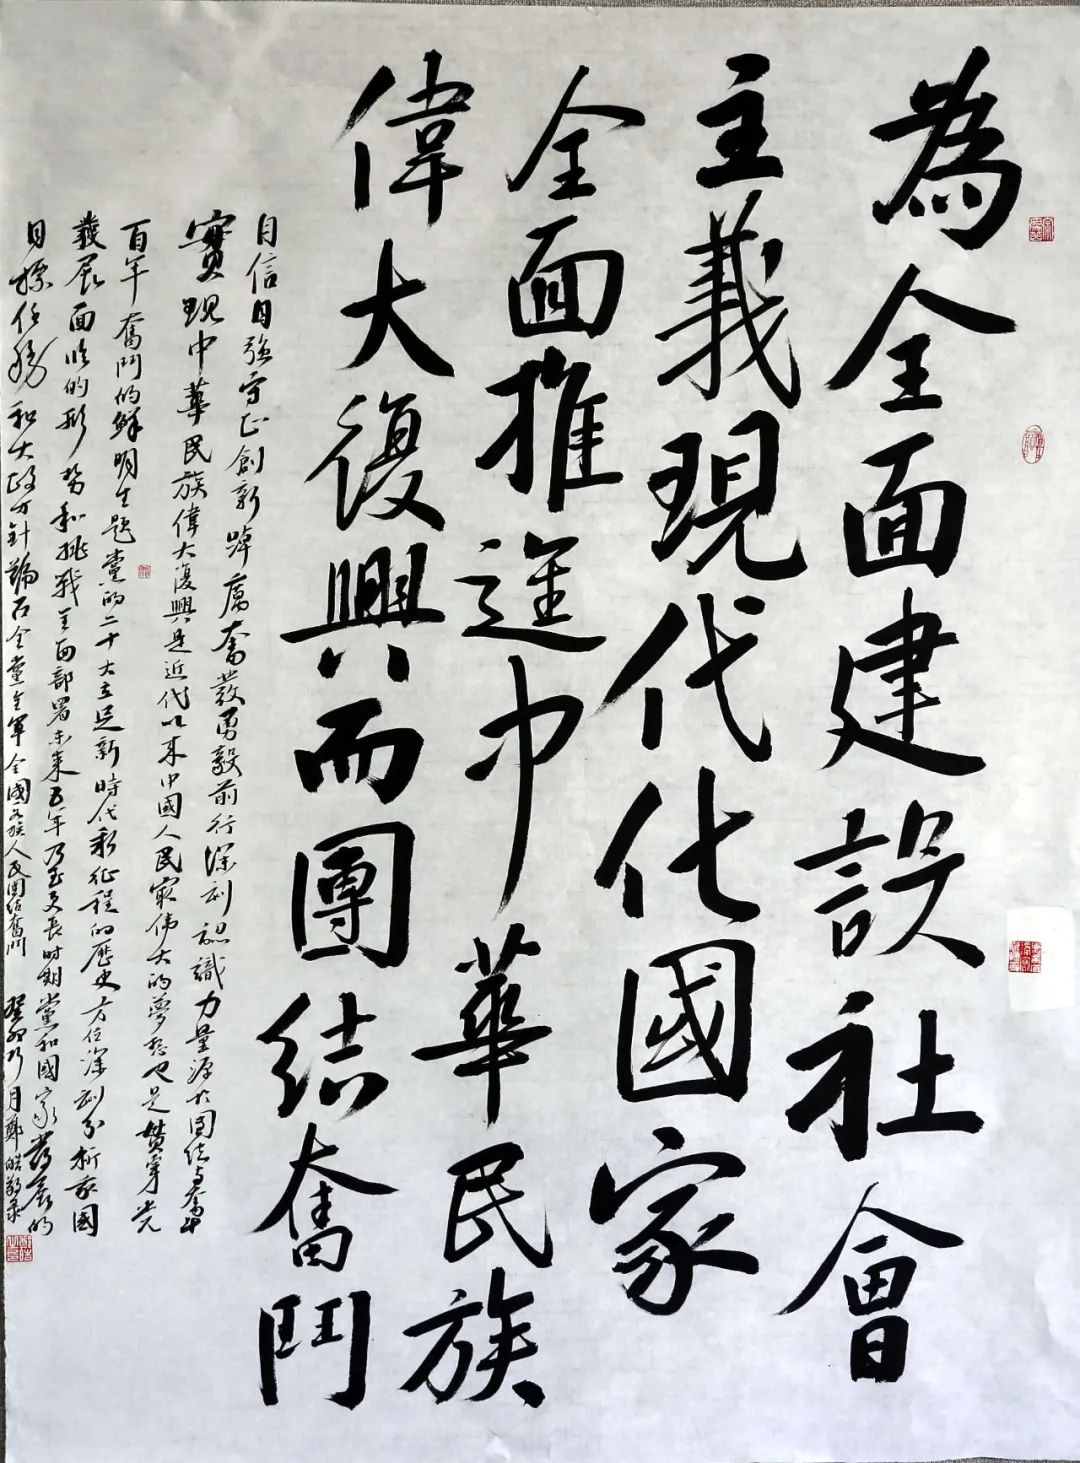 為全面建設社會
主義現代化國家
全面推進中華民族
偉大復興而團结奮鬥
自信自強守正創新踔厲奮發勇毅前行深刻認識力量源於團结奮斗
實現中華民族偉大復興是近代以来中國人民最伟大的夢想也是貫穿党
百年奮鬥的鮮明主題黨的二十大立足新時代新征程的歷史方位深刻分析我國
發展面临的形势和挑战全面部署未来五年乃至更長时期黨和國家發展的
目標任務和大政方針號召全黨全軍全國各族人民團结奮鬥 癸卯 月鄭皓敬录